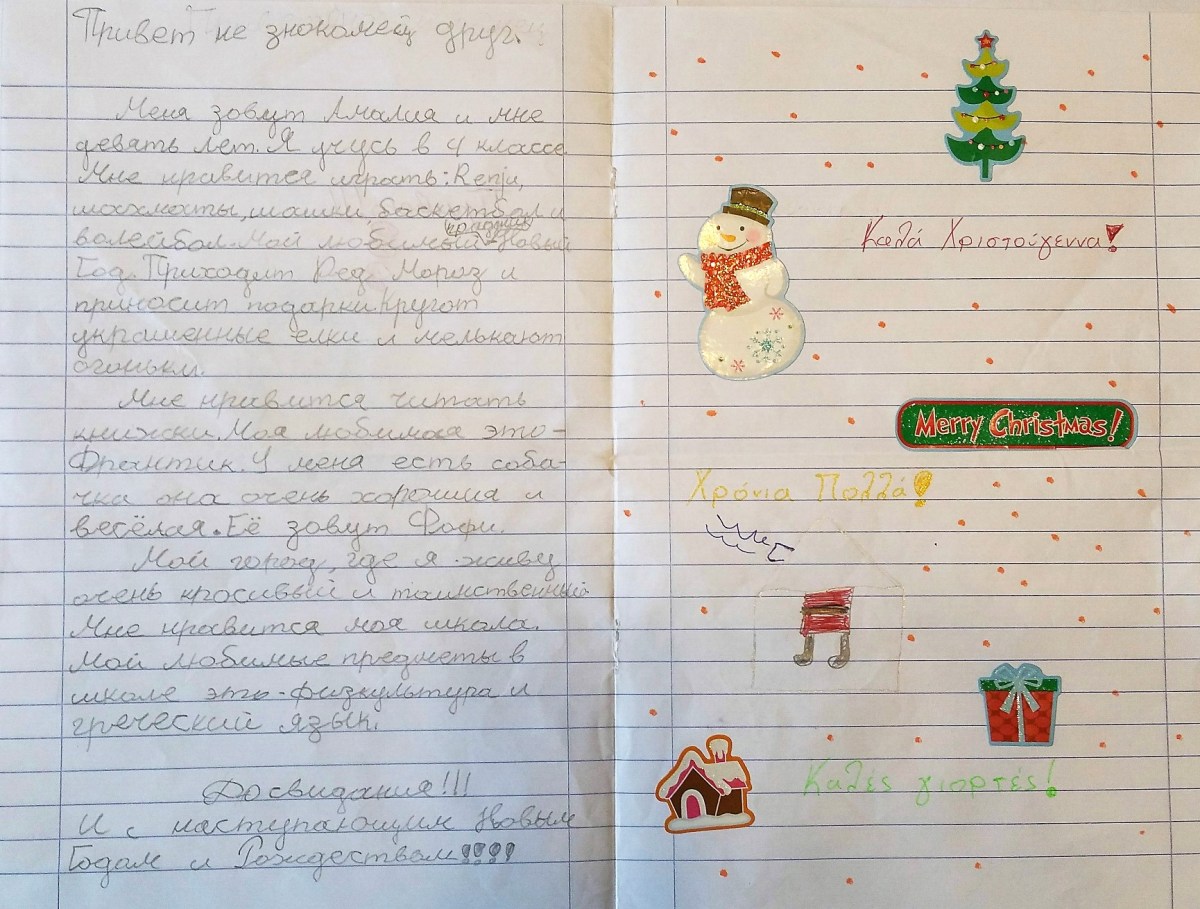 Привет не знокомец друг.
Меня зовут Амалия и мне
девять лет. Я учусь в 4 классе.
Мне нравится играть: Renju,
шахматы, шашки, баскетбол и
праздник
волейбол. Мой любимый - Новый
Год. Приходит Дед Мороз и
приносит подарки. Кругот
украшенные елки и мелькают
огоньки.
Мне нравится читать
книжки. Моя любимая это -
Франтик. У меня есть соба-
чка она очень хорошия и
весёлая. Её зовут Фофи.
Мой город, где я живу
очень красивый и таинственный
Мне нравится моя школа.
Мой любимые предметы в
школе это - физкультура и
греческий язык.
Досвидания!!!
И с наступающим Новым
Годом и Рождеством!!!!
Καλά Χριστούγεννα!
Merry Christmas!
Χρόνια Πολλά!
Καλές γιορτές!